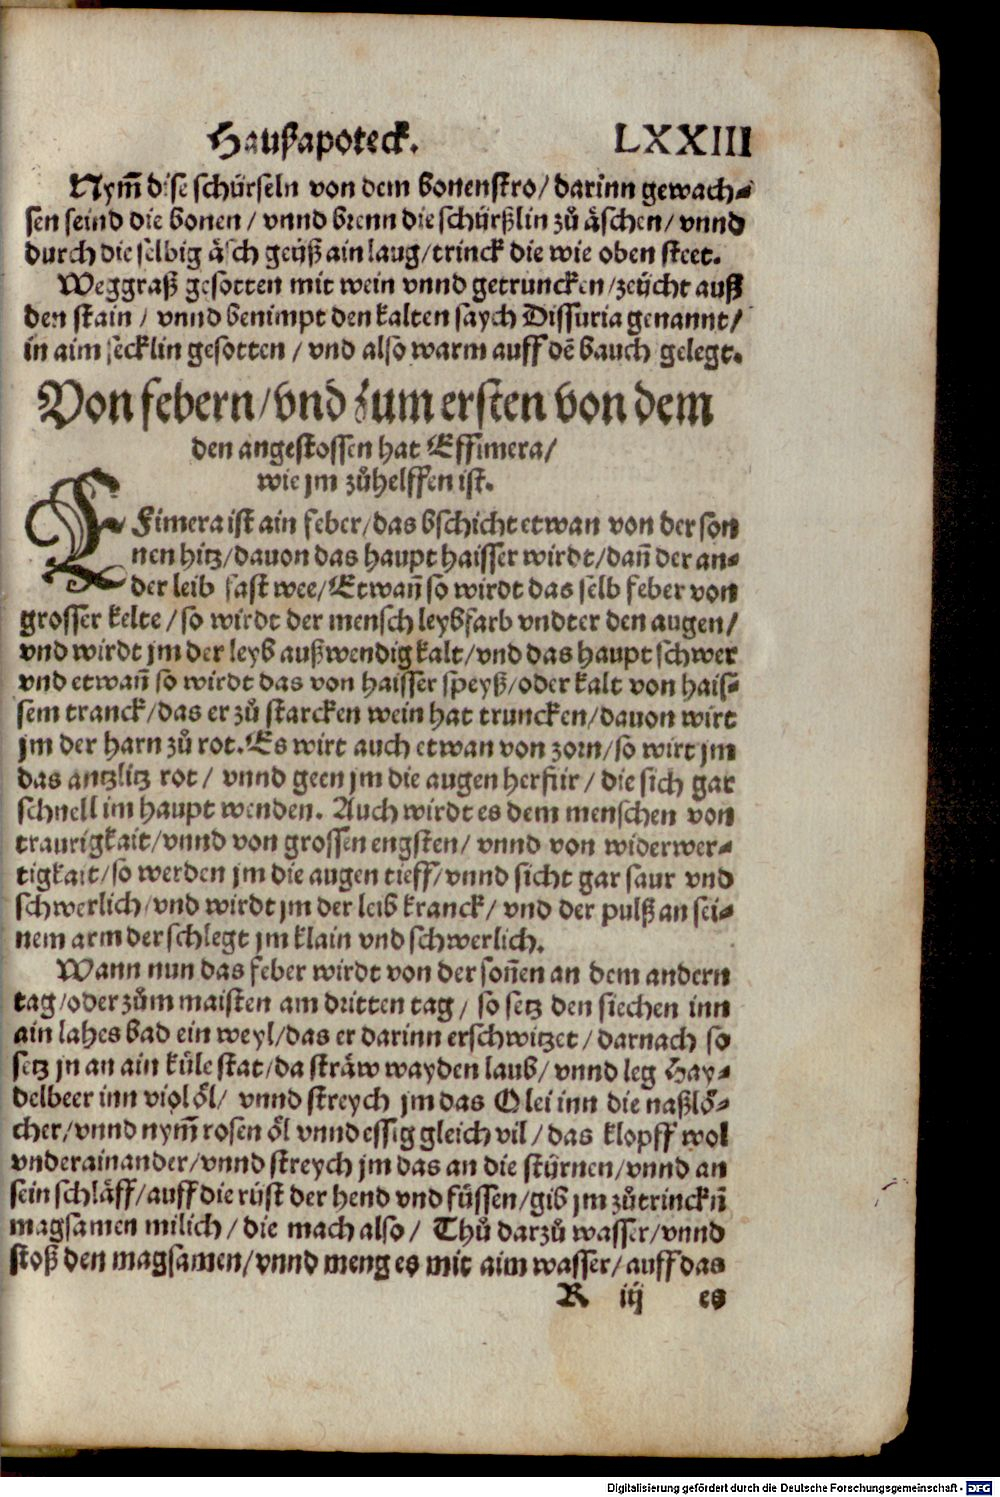 Haußapoteck. LXXIII
Nym̃ dise schürseln von dem bonenstro/ darinn gewach⸗
sen seind die bonen / vnnd brenn die schürßlin zů äschen/ vnnd
durch die selbig äsch geüß ain laug/trinck die wie oben steet.
Weggraß gesotten mit wein vnnd getruncken/zeücht auß
den stain / vnnd benimpt den kalten saych Dissuria genannt/
in aim secklin gesotten / vnd also warm auff dē bauch gelegt.
Von febern/vnd zum ersten von dem
den angestossen hat Effimera/
wie jm zůhelffen ist.
EFimera ist ain feber/das bschicht etwan von der son
nen hitz/dauon das haupt haisser wirdt/dañ der an⸗
der leib fast wee/Etwañ so wirdt das selb feber von
grosser kelte/so wirdt der mensch leybfarb vndter den augen/
vnd wirdt jm der leyb außwendig kalt/vnd das haupt schwer
vnd etwañ so wirdt das von haisser speyß/oder kalt von hais⸗
sem tranck/das er zů starcken wein hat truncken/dauon wirt
jm der harn zů rot. Es wirt auch etwan von zorn/so wirt jm
das antzlitz rot/ vnnd geen jm die augen herfür/ die sich gar
schnell im haupt wenden. Auch wirdt es dem menschen von
traurigkait/vnnd von grossen engsten/ vnnd von widerwer⸗
tigkait/so werden jm die augen tieff/vnnd sicht gar saur vnd
schwerlich/vnd wirdt jm der leib kranck/ vnd der pulß an sei⸗
nem arm der schlegt jm klain vnd schwerlich.
Wann nun das feber wirdt von der soñen an dem andern
tag/oder zům maisten am dritten tag/ so setz den siechen inn
ain lahes bad ein weyl/das er darinn erschwitzet/ darnach so
setz jn an ain küle stat/da sträw wayden laub/ vnnd leg Hay⸗
delbeer inn viol öl/ vnnd streych jm das Olei inn die naßlö⸗
cher/vnnd nym̃ rosen öl vnnd essig gleich vil/ das klopff wol
vnderainander/vnnd streych jm das an die styrnen/vnnd an
sein schläff/auff die rüst der hend vnd füssen/gib jm zůtrinckñ
magsamen milich/ die mach also/ Thů darzů wasser/vnnd
stoß den magsamen/vnnd meng es mit aim wasser/auff das
R iij es
Digitalisierung gefördert durch die Deutsche Forschungsgemeinschaft - DFG